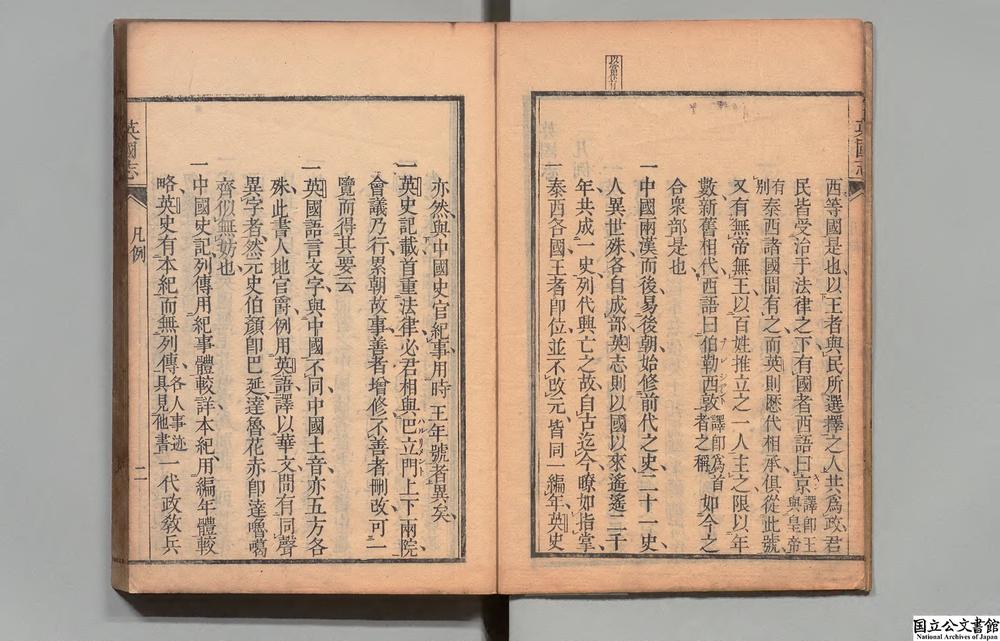 英國志
西等國是也以王者與民所選擇之人共爲政君
民皆受治于法律之下有國者西語曰京譯卽王與皇帝
有別泰西諸國間有之而英則歷代相承俱從此號
又有無帝無王以百姓推立之一人主之限以年
數新舊相代西語曰伯勒西敦譯卽爲首者之稱如今之
合衆部是也
一中國兩漢而後易後朝始修前代之史二十一史
人異世殊各自成部英志則以國以來遙遙二千
年共成一史列代興亡之故自古迄今瞭如指掌
一泰西各國王者卽位並不改元皆同一編年英史
亦然與中國史官紀事用時王年號者異矣
一英史記載首重法律必君相與巴立門上下兩院
會議乃行累朝故事善者增修不善者刪改可一
覽而得其要云
一英國語言文字與中國不同中國土音亦五方各
殊此書人地官爵例用英語譯以華文間有同聲
異字者然元史伯顏卽巴延達魯花赤卽達嚕噶
齊似無妨也
一中國史記列傳用紀事體較詳本紀用編年體較
略英史有本紀而無列傳各人事迹具見他書一代政敎兵
英國志
凡例
二
国立公文書館
National Archives of Japan